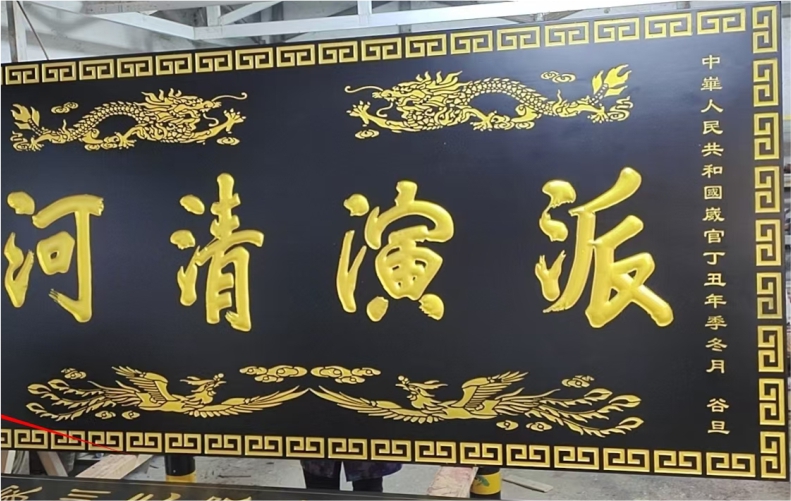 中華人民共和國歲官丁丑年季冬月 谷旦
派演清河